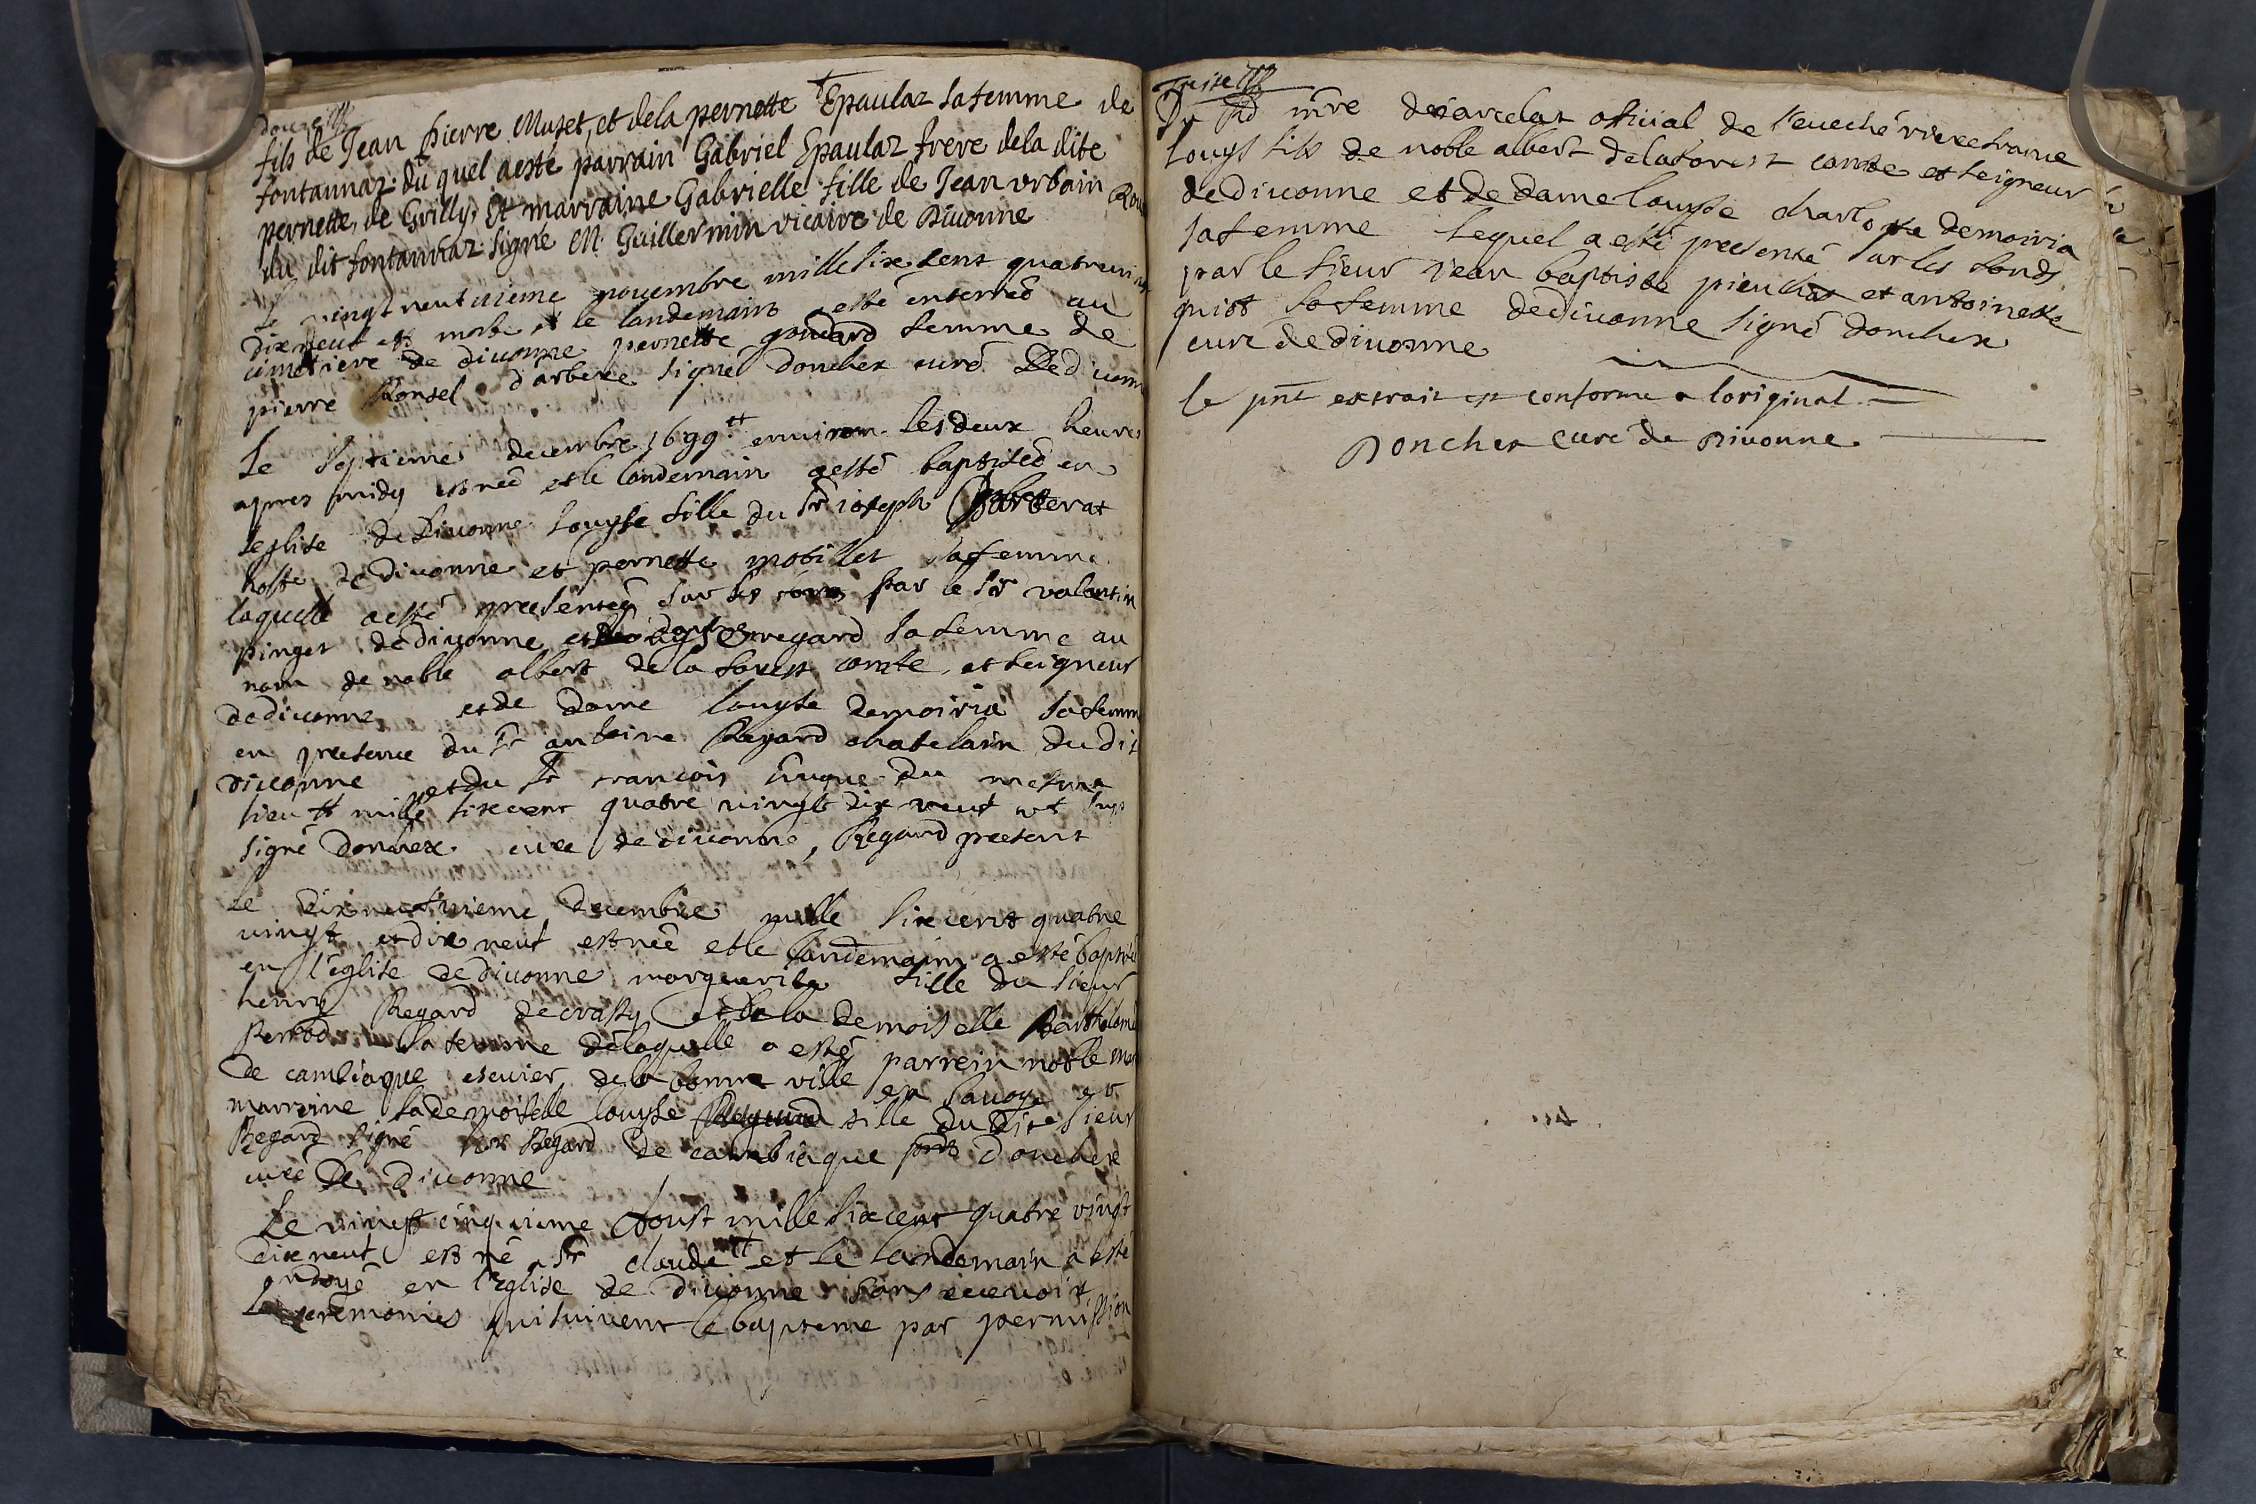 douze
fils de Jean pierre Muset, et dela pernette Epaulaz sa femme de
fontannaz du quel a esté parrain Gabriel Epaulaz frere dela dite
pernette de Grilly, et marraine Gabrielle fille de Jean urbain
du dit fontannaz signé M. Guillermin vicaire de Divonne
Le vingt neufuieme novembre mille six cens quatrevin
dixneuf est morte et le landemain esté enterreé au
cimetiere de divonne pernette goudard femme de
pierre Ronsel d'arbere signé Donchex curé De divonn
Le septieme decembre 1699 tt environ les deux heures
apres midy est neé et le landemain a esté baptiseé en
leglise de Divonne Louyse fille du Sr ioseph Barberat
hoste de divonne et pernette mobillet sa femme
laquelle a esté presenteé sur les fons par le Sr valentin
pinget de divonne et regard sa femme au
nom de noble albert de la forest comte et seigneur
de divonne et de dame louyse demoiria sa femm
en presence du Sr antoine Regard chatelain du dit
divonne et du Sr francois du mesme
lieu tt mille sixcent quatre vingts dix neuf
signé Donchex curé de divonne, Regard present
Le dix neufuieme Decembre mille six cens quatre
vingt et dix neuf est neé et le landemain a esté baptiseé
en l'eglise de divonne marguerite fille du sieur
henry Regard de crassy et de la demoiselle Bartholome
Perrod sa femme de laquelle a esté parrein noble
de cambiaque escuier de la bonne ville en savoye et
marraine la demoiselle louyse Regard fille du dit sieur
Regard signé Regard de cambiaque Donchex
curé de divonne
Le vingt cinquieme Aoust mille six cens quatre vingt
dixneuf est né Sr claude tt et le landemain a esté
ondoyé en l'eglise de divonne sans recevoir
les ceremonies qui suivent le baptesme par permission
treize
Du official de l'eveché
Louys fils de noble albert dela forest comte et seigneur
de divonne et de dame louyse charlotte demoiria
sa femme lequel a esté presenté sur les fonds
par le sieur jean baptiste et antoinette
sa femme de divonne signé donchex
curé de divonne
le pnt extrait est conforme a loriginal
Donchex curé de Divonne